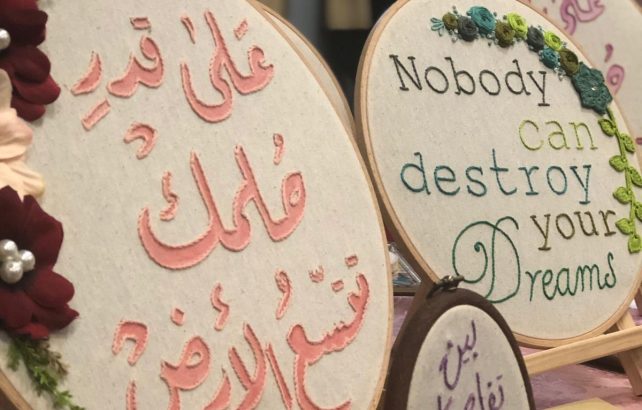 على قدرِ
حُلمك
تتسّع الأرضُ
Nobody
can
destroy
your
Dreams
بين